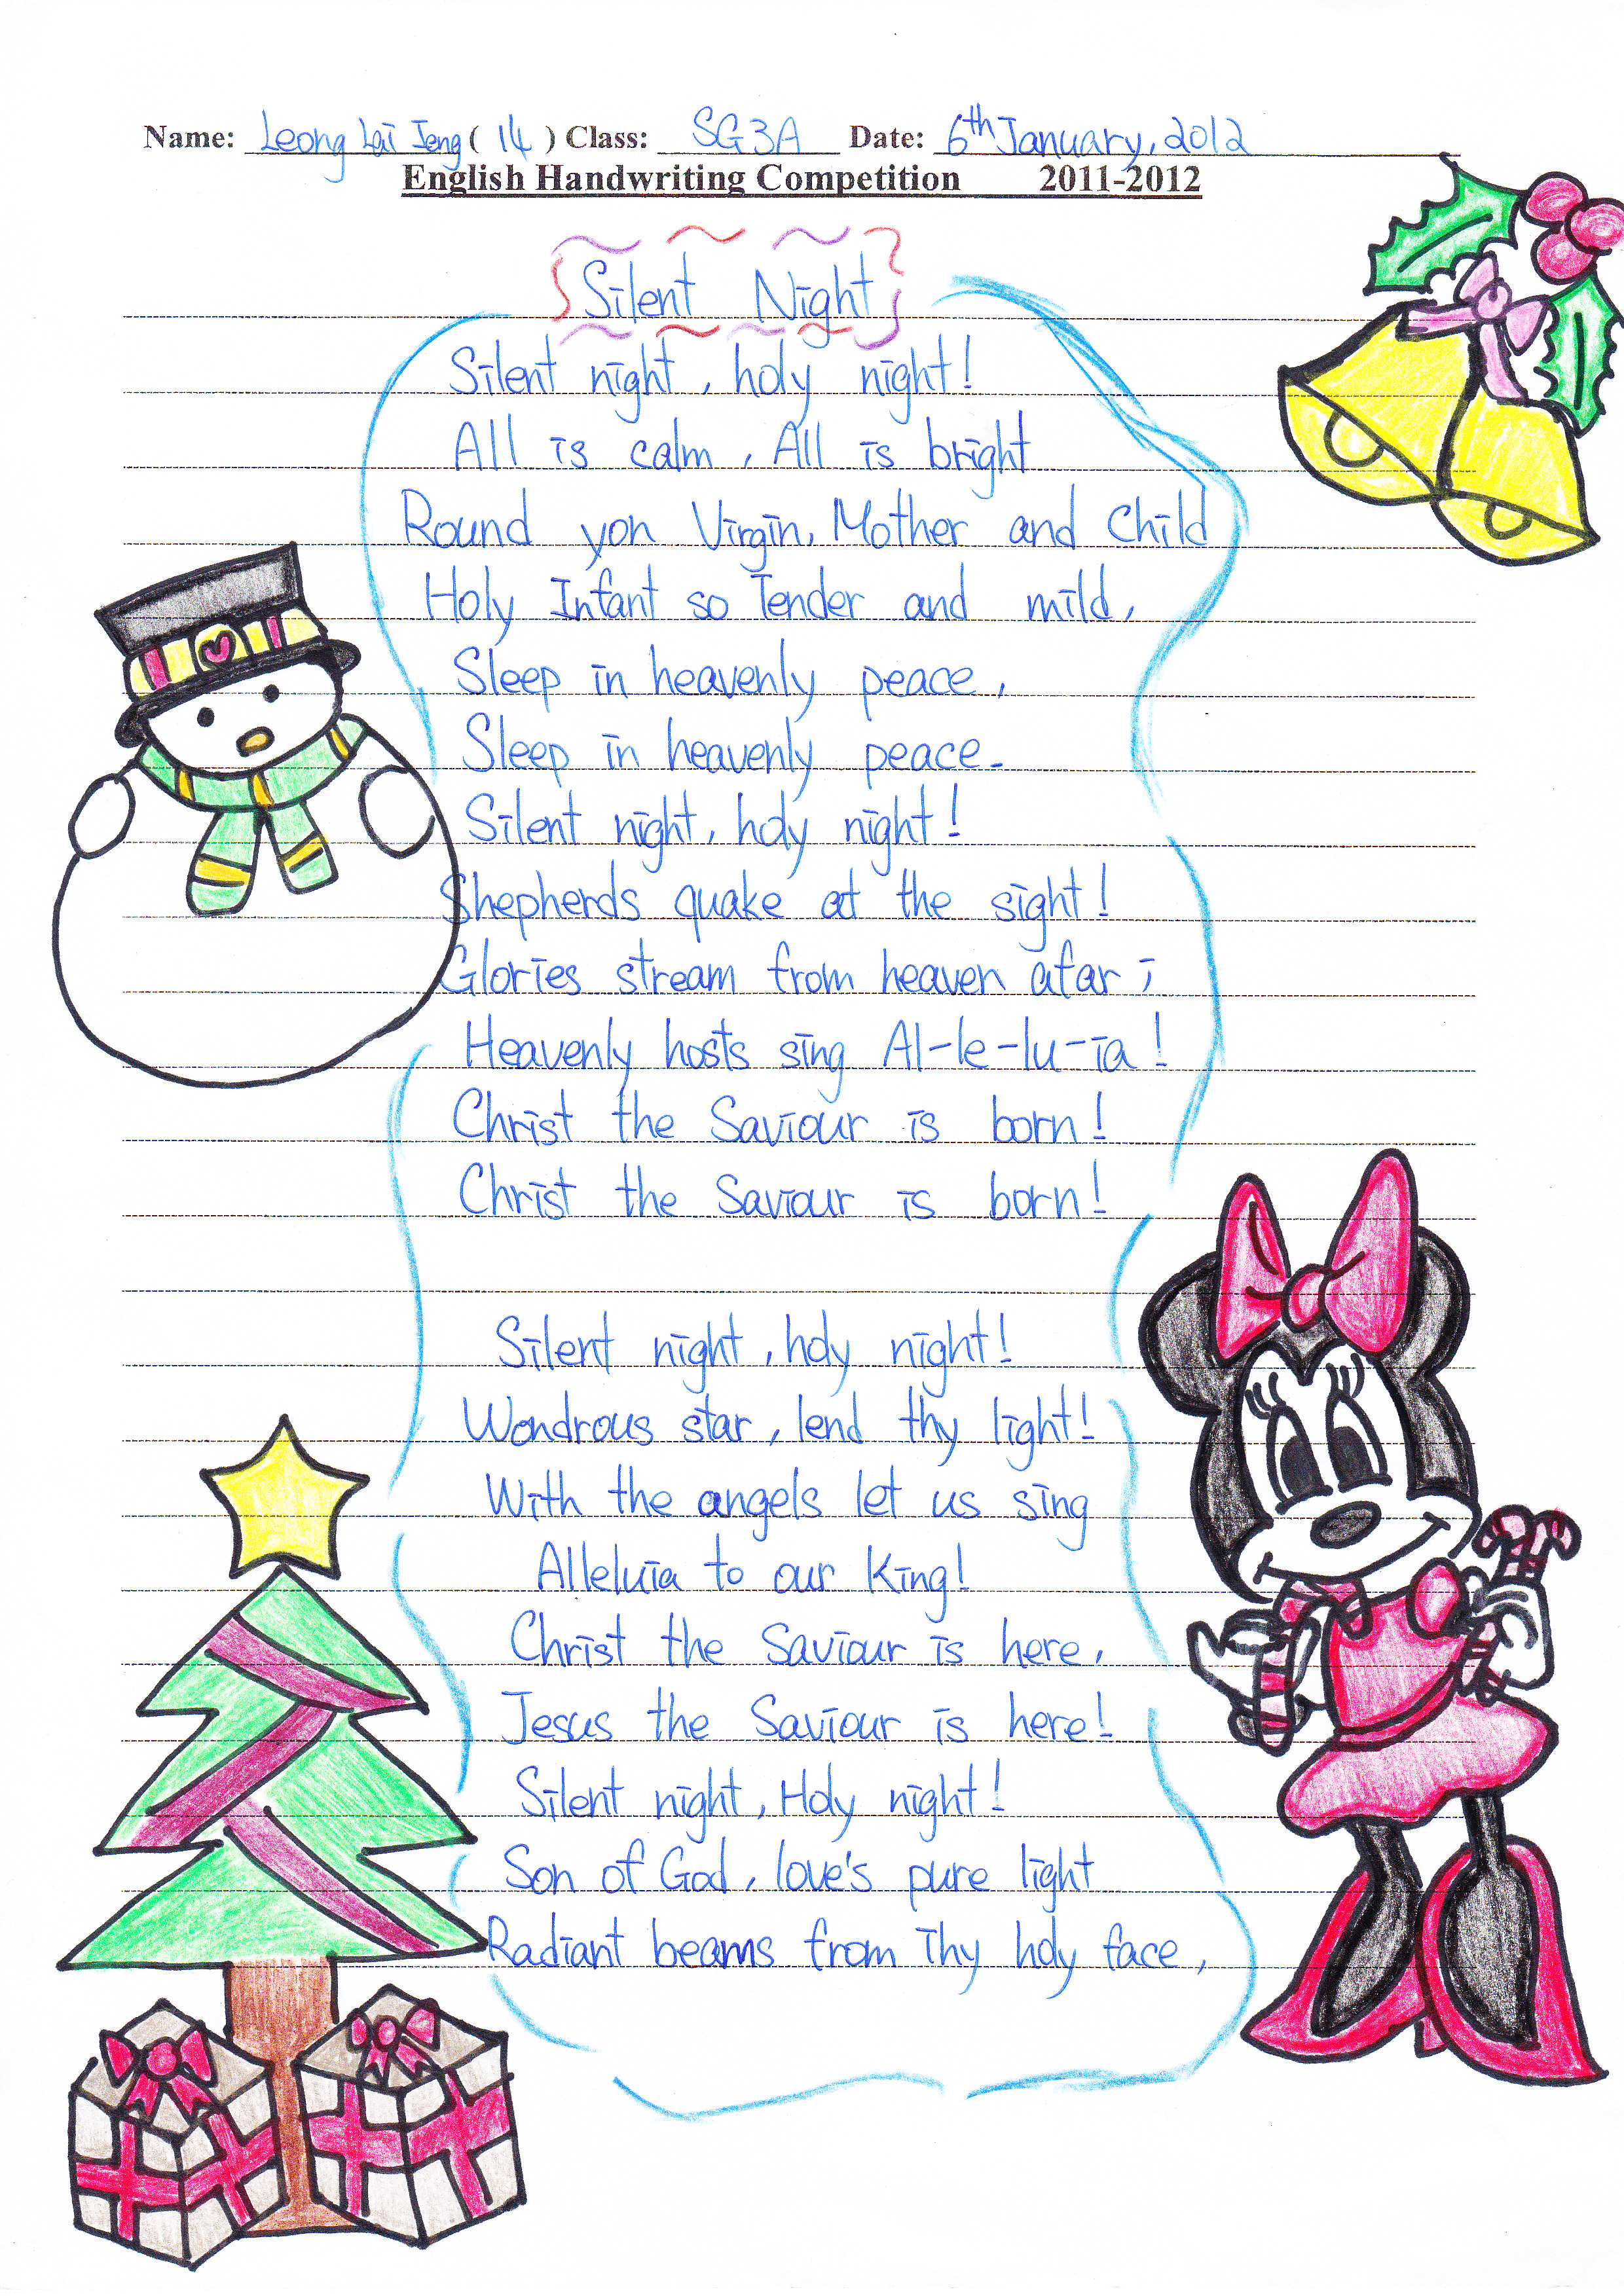 Name: Leong Lai Ieng ( 14 ) Class: SG3A Date: 6th January, 2012
English Handwriting Competition 2011-2012
Silent Night
Silent night, holy night!
All is calm, All is bright
Round yon Virgin, Mother and Child
Holy Infant so Tender and mild,
Sleep in heavenly peace,
Sleep in heavenly peace.
Silent night, holy night!
Shepherds quake at the sight!
Glories stream from heaven afar;
Heavenly hosts sing Al-le-lu-ia!
Christ the Saviour is born!
Christ the Saviour is born!
Silent night, holy night!
Wondrous star, lend thy light!
With the angels let us sing
Alleluia to our King!
Christ the Saviour is here,
Jesus the Saviour is here!
Silent night, Holy night!
Son of God, love's pure light
Radiant beams from Thy holy face,